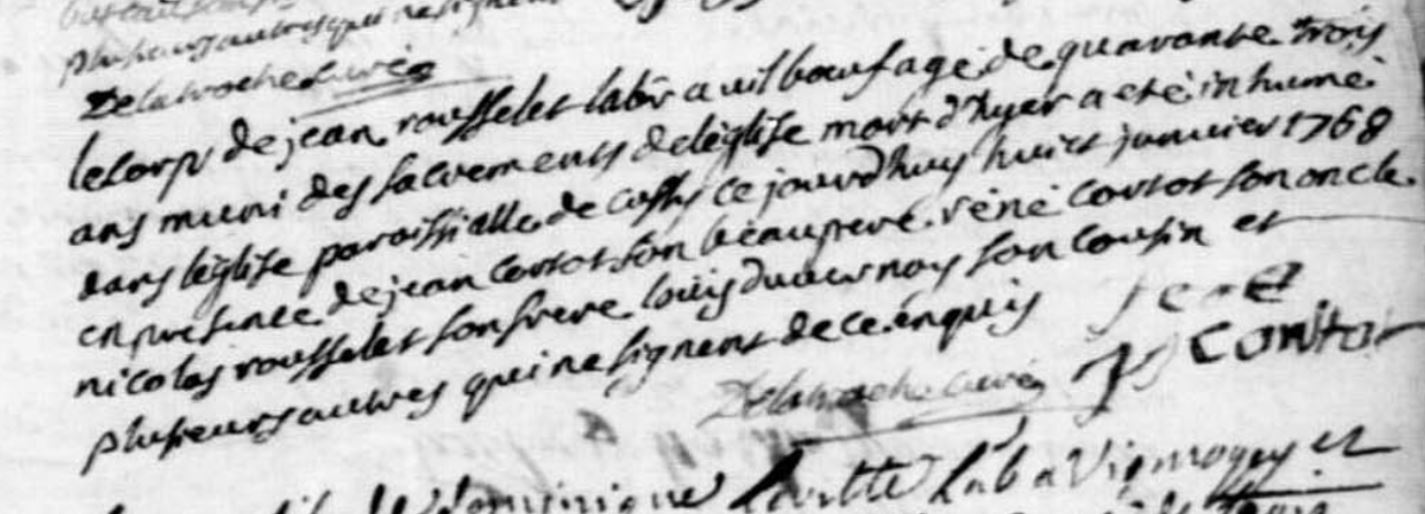 plusieurs autres qui ne signent
Delaroche curé
le corp de jean rousselet labr a vilboeuf agé de quarante trois
ans muni des sacrements de leglise mort d'hyer a eté inhumé
dans leglise paroissialle de cussy ce jourdhuy huict janvier 1768
en presence de jean cortot son beaupere réné cortot son oncle
nicolas rousselet son frere louis duvernoy son cousin et
plusieurs autres qui ne signent de ce enquis
Delaroche curé
dominique Lab a Vigmogey et